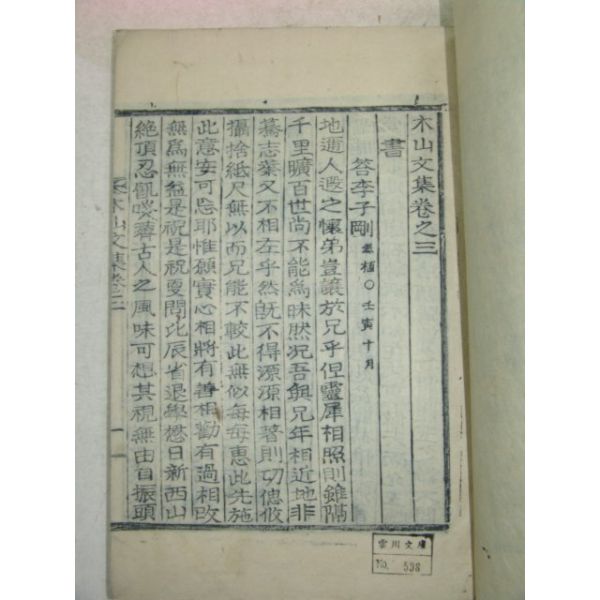 木山文集卷之三
書
答李子剛 基植○壬寅十月
地邇人遐之懷弟豈讓於兄乎但靈犀相照則雖隔
千里曠百世尚不能爲昧然况吾與兄年相近地非
夐志業又不相左乎然旣不得源源相著則切偲攸
攝捨紙尺無以而兄能不較此無似每每惠此先施
此意安可忘耶惟願實心相將有善相勸有過相改
無爲無益是祝是祝夏間比辰省退學懋日新西山
絶頂忍飢喫薺古人之風味可想其視無由自振頭
木山文集卷之三
一
雲川文庫
No. 598